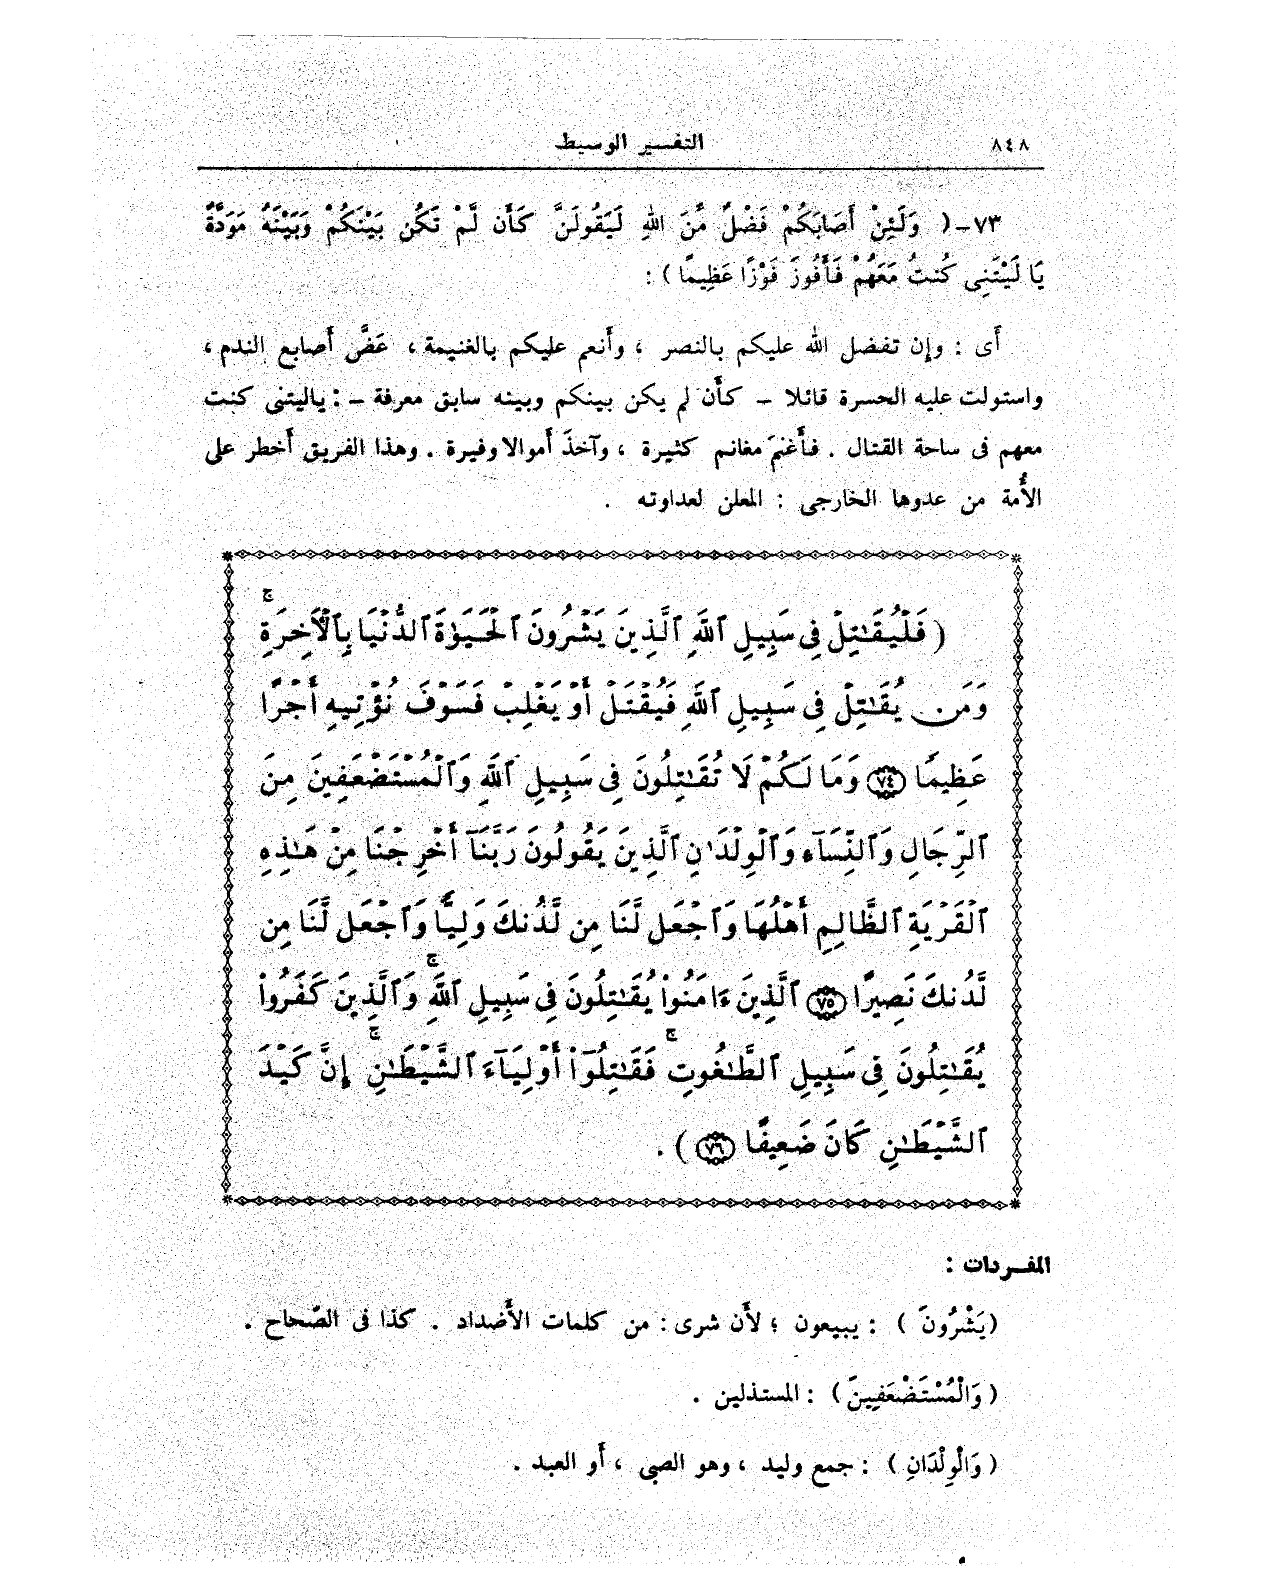 ٨٤٨
التفسير الوسيط
٧٣- ( وَلَئِنْ أَصَابَكُمْ فَضْلٌ مِّنَ اللهِ لَيَقُولَنَّ كَأَن لَّمْ تَكُن بَيْنَكُمْ وَبَيْنَهُ مَوَدَّةٌ
يَا لَيْتَنِى كُنتُ مَعَهُمْ فَأَفُوزَ فَوْزًا عَظِيمًا ) :
أَى : وإن تفضل الله عليكم بالنصر ، وأَنعم عليكم بالغنيمة ، عَضَّ أَصابع الندم ،
واستولت عليه الحسرة قائلا – كأَن لم يكن بينكم وبينه سابق معرفة – : ياليتنى كنت
معهم فى ساحة القتال . فأَغنمَ مغانم كثيرة ، وآخذَ أَموالا وفيرة . وهذا الفريق أَخطر على
الأُمة من عدوها الخارجى : المعلن لعداوته .
( فَلْيُقَـٰتِلْ فِى سَبِيلِ ٱللَّهِ ٱلَّذِينَ يَشْرُونَ ٱلْحَيَوٰةَ ٱلدُّنْيَا بِٱلْأَخِرَةِ ۚ
وَمَن يُقَـٰتِلْ فِى سَبِيلِ ٱللَّهِ فَيُقْتَلْ أَوْ يَغْلِبْ فَسَوْفَ نُؤْتِيهِ أَجْرًا
عَظِيمًا ٧٤ وَمَا لَكُمْ لَا تُقَـٰتِلُونَ فِى سَبِيلِ ٱللَّهِ وَٱلْمُسْتَضْعَفِينَ مِنَ
ٱلرِّجَالِ وَٱلنِّسَآءِ وَٱلْوِلْدَٰنِ ٱلَّذِينَ يَقُولُونَ رَبَّنَآ أَخْرِجْنَا مِنْ هَـٰذِهِ
ٱلْقَرْيَةِ ٱلظَّالِمِ أَهْلُهَا وَٱجْعَل لَّنَا مِن لَّدُنكَ وَلِيًّا وَٱجْعَل لَّنَا مِن
لَّدُنكَ نَصِيرًا ٧٥ ٱلَّذِينَ ءَامَنُوا۟ يُقَـٰتِلُونَ فِى سَبِيلِ ٱللَّهِ ۚ وَٱلَّذِينَ كَفَرُوا۟
يُقَـٰتِلُونَ فِى سَبِيلِ ٱلطَّـٰغُوتِ ۚ فَقَـٰتِلُوٓا۟ أَوْلِيَآءَ ٱلشَّيْطَـٰنِ ۚ إِنَّ كَيْدَ
ٱلشَّيْطَـٰنِ كَانَ ضَعِيفًا ٧٦ ) .
المفـردات :
(يَشْرُونَ ) : يبيعون ؛ لأَن شرى : من كلمات الأَضداد . كذا فى الصّحاح .
( وَالْمُسْتَضْعَفِينَ ) : المستذلين .
( وَالْوِلْدَانِ ) : جمع وليد ، وهو الصبى ، أَو العبد .